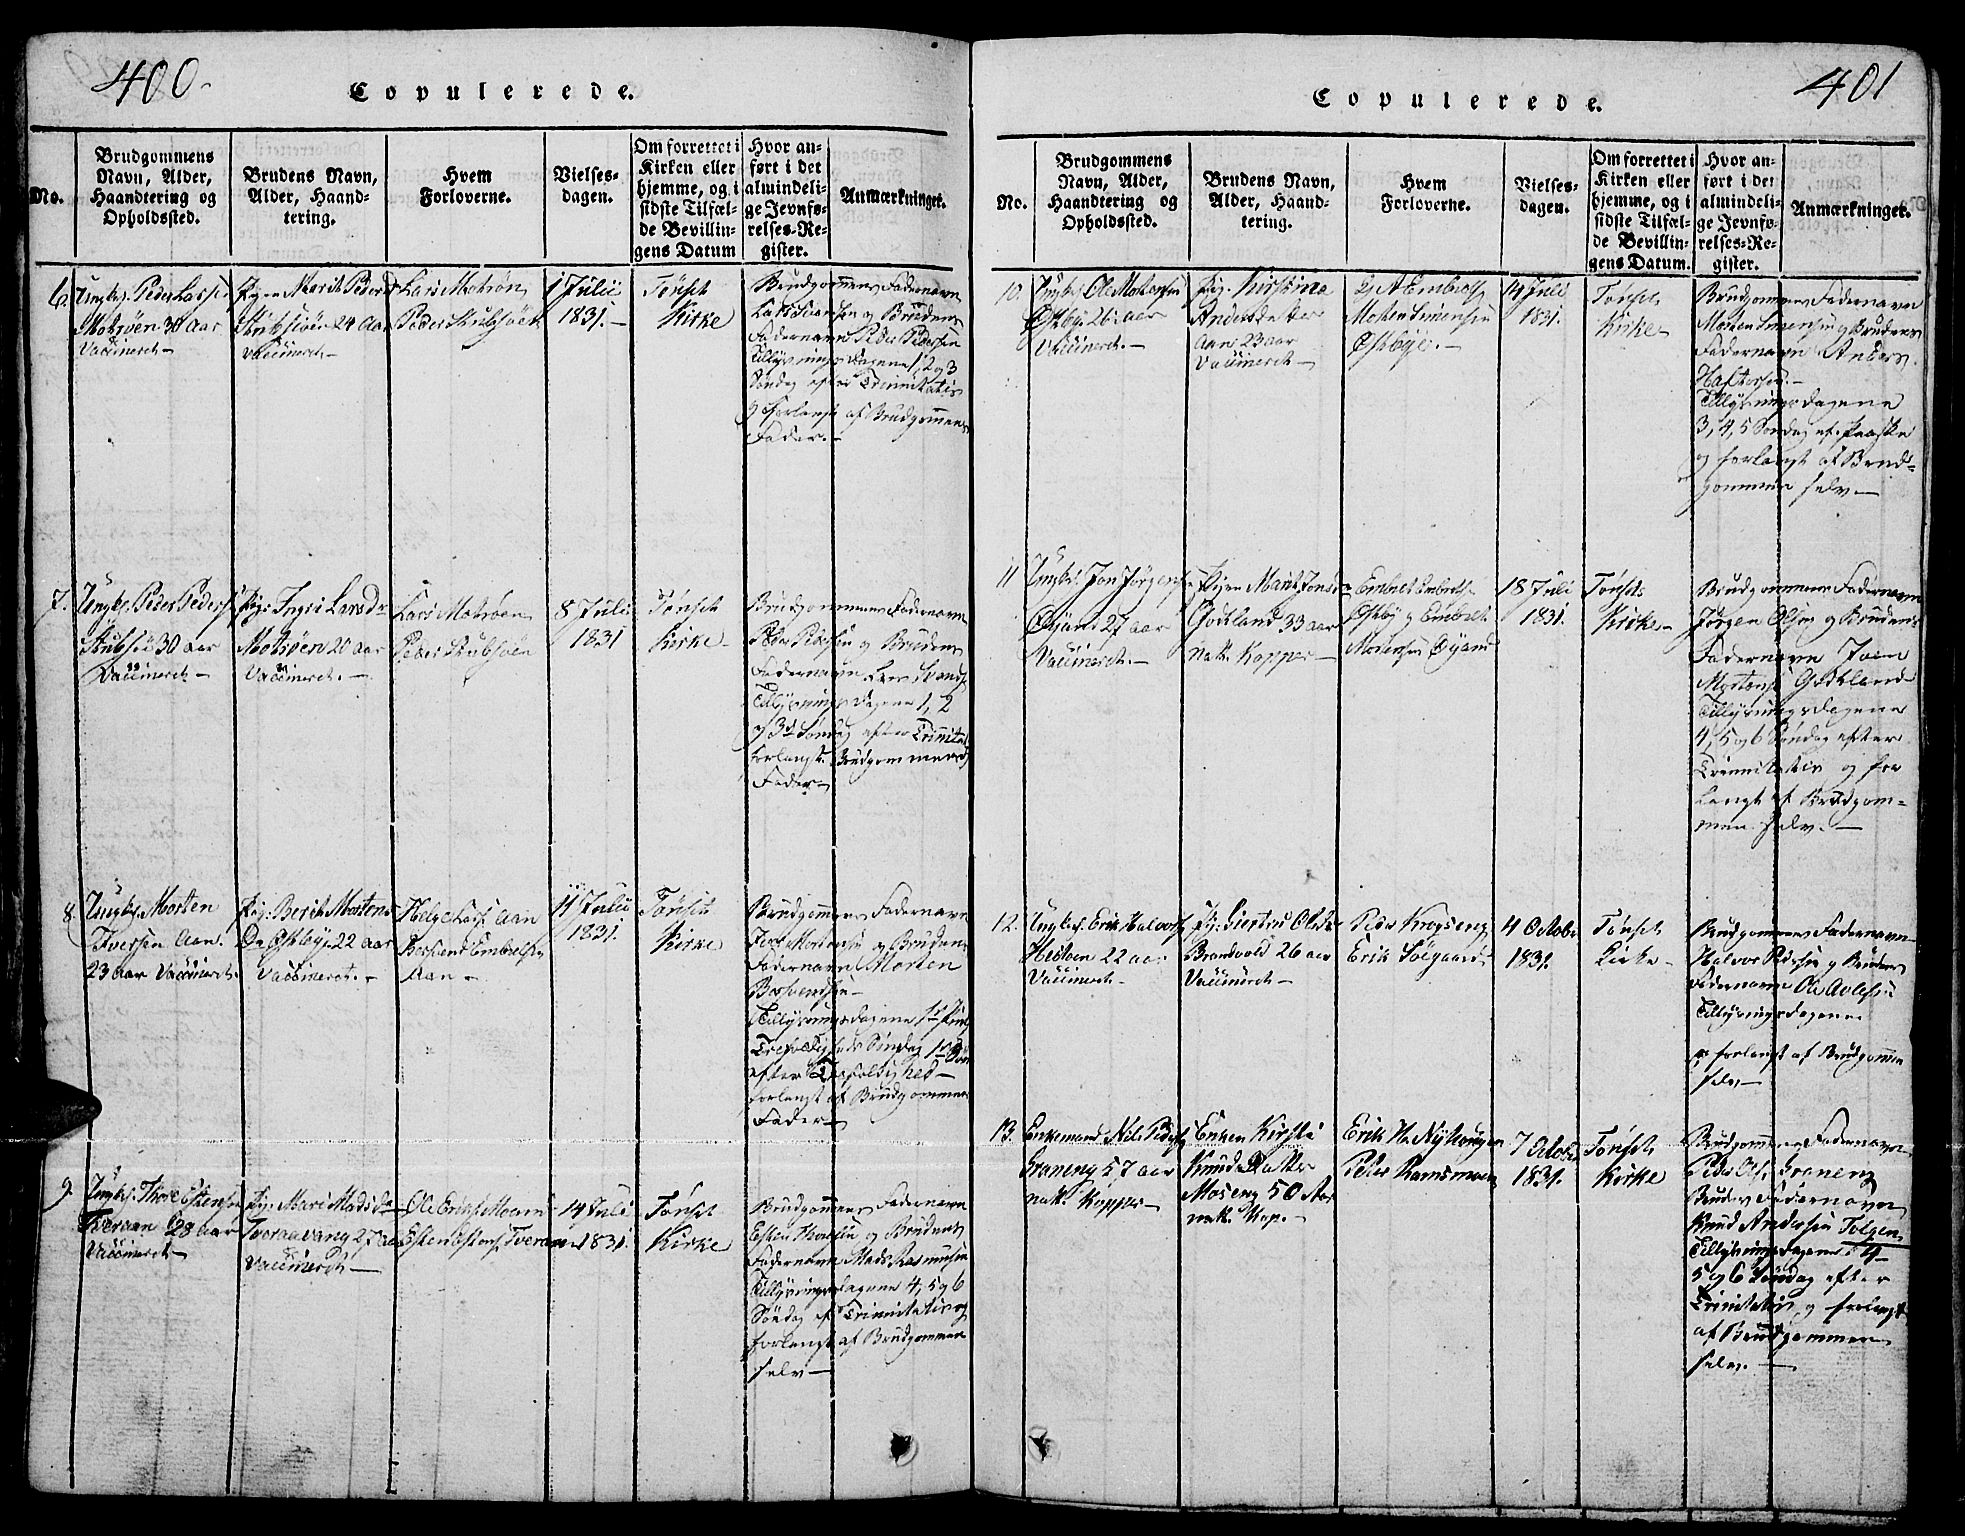 400-
Copulerede.
No.
Brudgommens
Navn, Alder,
Haandtering og
Opholdssted.
Brudens Navn,
Alder, Haand-
tering.
Hvem
Forloverne.
Vielses-
dagen.
Om forrettet i
Kirken eller
hjemme, og i
sidste Tilfæl-
de Bevillin-
gens Datum
Hvor an-
ført i det
almindeli-
ge Jevnfø-
relses-Re-
gister.
Anmærkninger.
6.
Ungk. Peder Larss.
Motrøen 30 aar
Vaccineret-
Pigen Marit Pedersd
Stubsiöen 24 Aar
Vaccineret-
Lars Motrøn
Peder Stubsjöen
1 Julii
1831.-
Tønset
Kirke
Brudgommens Fadernavn
og Brudens
Fadernavn Peder Pedersen
Tillysnings Dagene 1, 2 og 3
Søndag efter Trinnitatis
og forlangt af Brudgommens
Fader.-
7.
Ungk. Peder Peders.
Stubsiö 30 aar
Vaccineret-
Pige Ingri Larsdr
Motrøen 20 aar
Vaccineret.-
Lars Motrøen
Peder Stubsiöen
8 Juli
1831
Tønset
Kirke-
Brudgommens Fadernavn
Peder Pedersen og Brudens
Fadernavn Lars
Tillysnings Dagene 1, 2
og 3de Søndag efter Trinnita
forlangt Brudgommens
Fader-
8
Ungk. Morten
Iversen Aan.
23 aar Vaccineret.
Pig: Berit Mortens
Dr Østbye 22 aar
Vaccineret.-
Helge Lars. Aan
Bersvend Embretsen
Aan-
11 Julii
1831.
Tønset
Kirke
Brudgommens Fadernavn
Iver Mortensen og Brudens
Fadernavn Morten
Bersvendsen-
Tillysningsdagene
Trefoldigheds Søndag 1ste Søn
efter Trefoldighed-
forlangt af Brudgommens
Fader-
9.
Ungk. Thore Estensen
Tveraan 28 aar
Vaccineret-
Pig. Mari Madsdr
Tveraavang 27 aar
Vaccineret-
Ole Erics. Moan
Esten Estens. Tveraaen
14 Juli
1831.
Tønset
Kirke
Brudgommens Fadernavn
Esten Thoresen og Brudens
Fadernavn Mads Rasmusen
Tillysningsdagene 4, 5 og 6
Søndag ef Trinnitatis og
forlangt af Brudgommen
selv-
401
Copulerede.
No.
Brudgommens
Navn, Alder,
Haandtering og
Opholdssted.
Brudens Navn,
Alder, Haand-
tering.
Hvem
Forloverne.
Vielses-
dagen.
Om forrettet i
Kirken eller
hjemme, og i
sidste Tilfæl-
de Bevillin-
gens Datum.
Hvor an-
ført i det
almindeli-
ge Jevnfø-
relses-Re-
gister.
Anmærkninger.
10.
Ungk. Ole Mortensen
Østbye 26 aar
Vaccineret.-
Pig. Kirstina
Andersdatter
Aan 23 aar
Vaccineret-
Embrets.
Morten Simensen
Østbye.-
14 Juli
1831.
Tønset
Kirke-
Brudgommens Fadernavn
Morten Simensen og Brudens
Fadernavn Anders
Haftorsen.-
Tillysningsdagene
3, 4, 5 Søndag ef. Paaske
og forlangt af Brud-
gommen selv.-
11
Ungk. Jon Jørgensen
Øyan 27 aar
Vaccineret.-
Pigen Marit Jonsdr
Godtland 33 aar
nat. Kopper-
Embret Embrets.
Østby og Embret
Mortensen Øyand
18 Juli
1831.
Tønset
Kirke-
Brudgommens Fadernavn
Jørgen Olsen og Brudens
Fadernavn Joen
Mortens. Godtland-
Tillysningsdagene
4, 5 og 6 Søndag efter
Trinnitatis og for
langt af Brudgom-
men selv.-
12.
Ungk. Erik Halvors.
Hedtoen 22 aar
Vaccineret-
Pig. Giertrud Olsdr
Brandvold 26 aar
Vaccineret-
Peder Krogseng
Erik Sölgaard
4 Octobr
1831.
Tønset
Kirke-
Brudgommens Fadernavn-
Halvor Pedersen og Brudens
Fadernavn Ole
Tillysningsdagene
og forlangt af Brudgommen
selv-
13.
Enkemand Nils Peders.
Graneng 57 aar
nat. Kopper-
Enken Kirsti
Knudsdatter
Moseng 50 Aar
nat. Kop.-
Erik H. Nyhougen
Peder Ramsmoen
7 Octobr
1831.
Tønset
Kirke
Brudgommens Fadernavn
Peder Ols. Graneng
Brudens Fadernavn
Knud Andersen Tolgen
Tillysningsdagene 4
5 og 6 Søndag efter
Trinitatis og forlangt
af Brudgommen
selv.-